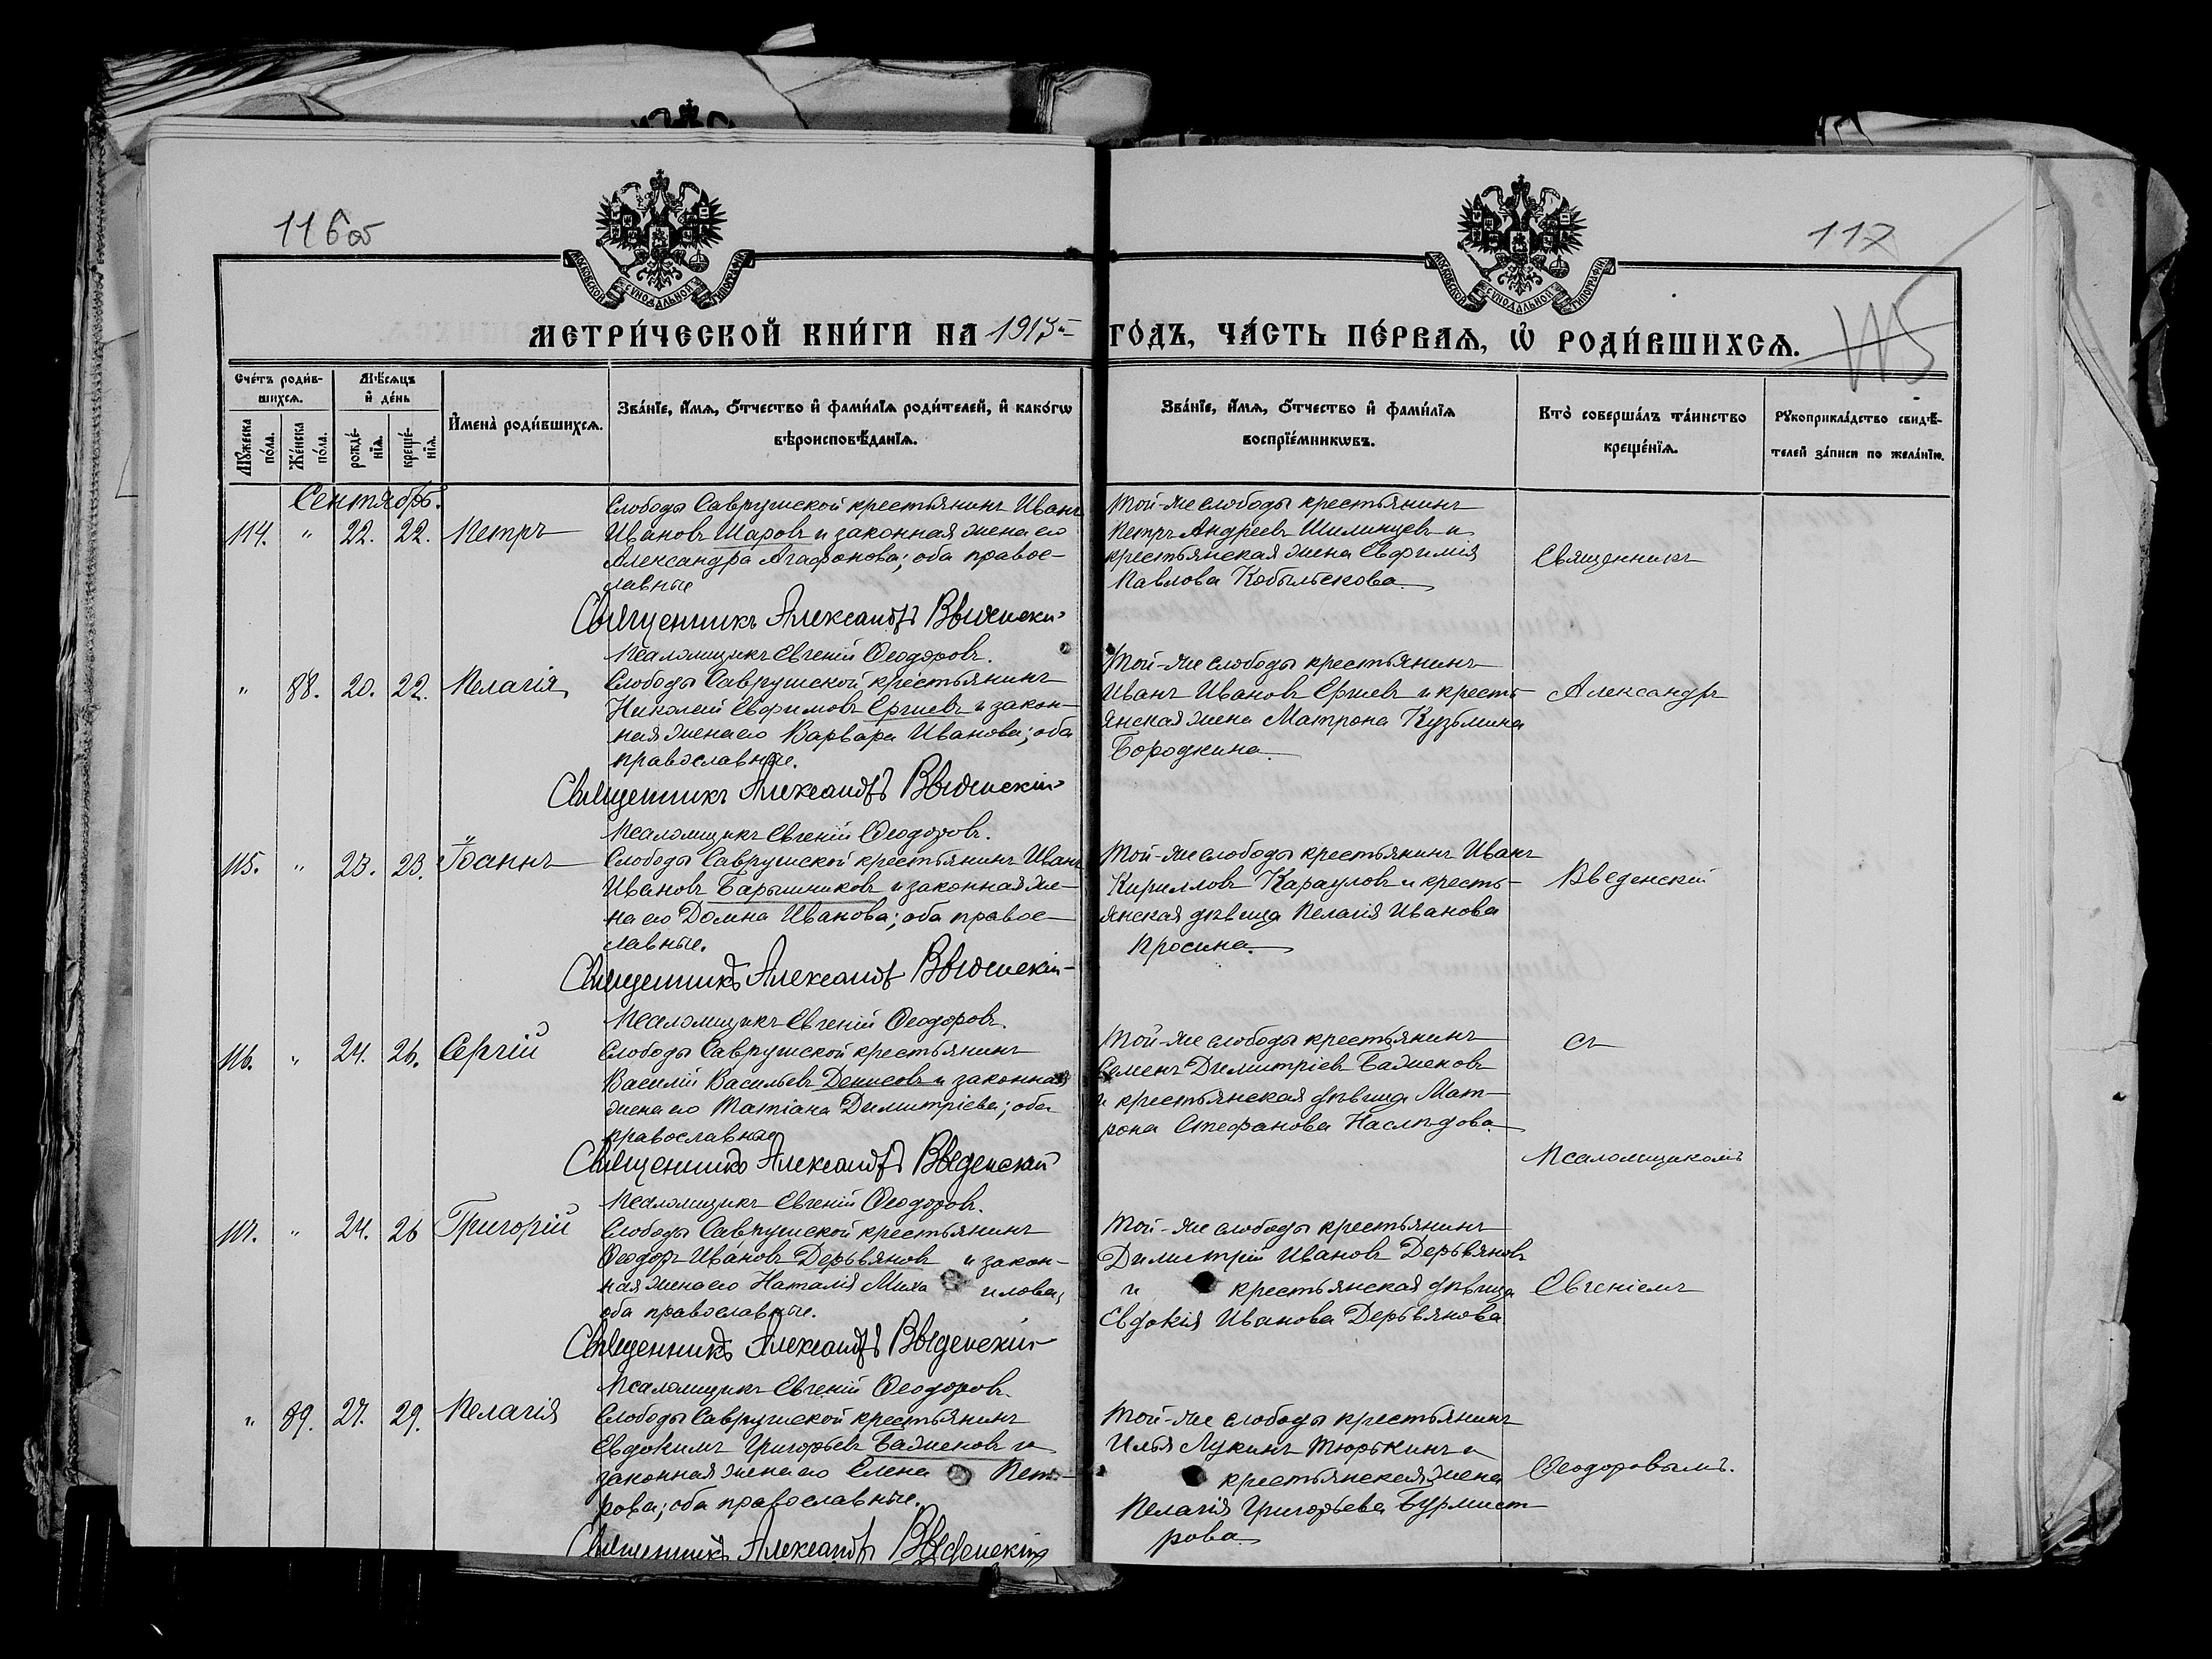 116об
117
115
МОСКОВСКОЙ СѴНОДАЛЬНОЙ ТИПОГРАФІИ
МОСКОВСКОЙ СѴНОДАЛЬНОЙ ТИПОГРАФІИ
МЕТРИ́ЧЕСКОЙ КНИ́ГИ НА 1915й ГО́ДЪ, ЧА́СТЬ ПЕ́РВАѦ, Ѡ҆ РОДИ́ВШИХСѦ.
Сче́тъ роди́в-
шихсѧ.
Мꙋжеска по́ла.
Же́нска по́ла.
Мѣ́сѧцъ
и҆ де́нь
рожде́-
нїѧ.
креще́-
нїѧ.
И҆мена̀ роди́вшихсѧ.
Зва́нїе, и҆́мѧ, ѻ҆́тчество и҆ фами́лїѧ роди́телей, и҆ како́гѡ
вѣроисповѣ́данїѧ.
Зва́нїе, и҆́мѧ, ѻ҆́тчество и҆ фами́лїѧ
воспрїе́мникѡвъ.
Кто̀ соверша́лъ та́инство
креще́нїѧ.
Рꙋкоприкла́дство свидѣ́-
телей за́писи по жела́нїю.
Сентябрь.
114. " 22. 22. Петръ
Слободы Саврушской крестьянинъ Иванъ
Ивановъ Шаровъ и законная жена его
Александра Агафонова; оба правос-
лавные
Священникъ Александръ Введенскій
Псаломщикъ Евгеній Ѳеодоровъ.
Той-же слободы крестьянинъ
Петръ Андреевъ Шилинцевъ и
крестьянская жена Евфимія
Павлова Кобыльскова
Священникъ
" 88. 20. 22. Пелагія
Слободы Саврушской крестьянинъ
Николай Евфимовъ Ергиевъ и закон-
ная жена его Варвара Иванова; оба
православные.
Священникъ Александръ Введенскій
Псаломщикъ Евгеній Ѳеодоровъ.
Той-же слободы крестьянинъ
Иванъ Ивановъ Ергиевъ и кресть-
янская жена Матрона Кузьмина
Бородкина
Александръ
115. " 23. 23. Іоаннъ
Слободы Саврушской крестьянинъ Иванъ
Ивановъ Барышниковъ и законная же-
на его Домна Иванова; оба правос-
лавные.
Священникъ Александръ Введенскій
Псаломщикъ Евгеній Ѳеодоровъ.
Той-же слободы крестьянинъ Иванъ
Кирилловъ Карауловъ и кресть-
янская дѣвица Пелагія Иванова
Просина
Введенскій
116. " 24. 26. Сергій
Слободы Саврушской крестьянинъ
Василій Васильевъ Денисовъ и законная
жена его Татіана Димитріева; оба
православные
Священникъ Александръ Введенскій
Псаломщикъ Евгеній Ѳеодоровъ.
Той-же слободы крестьянинъ
Семенъ Димитріевъ Баженовъ
и крестьянская дѣвица Мат-
рона Стефанова Наслѣдова
съ
Псаломщикомъ
117. " 24. 26 Григорій
Слободы Саврушской крестьянинъ
Ѳеодоръ Ивановъ Деревяновъ и закон-
ная жена его Наталія Миха илова;
оба православные.
Священникъ Александръ Введенскій
Псаломщикъ Евгеній Ѳеодоровъ.
Той-же слободы крестьянинъ
Димитрій Ивановъ Деревяновъ
и крестьянская дѣвица
Евдокія Иванова Деревянова
Евгеніемъ
" 89. 27. 29. Пелагія
Слободы Саврушской крестьянинъ
Евдокимъ Григорьевъ Баженовъ и
законная жена его Елена Пет-
рова; оба православные.
Священникъ Александръ Введенскій
Той-же слободы крестьянинъ
Илья Лукинъ Тюрькинъ и
крестьянская жена
Пелагія Григорьева Бурмист-
рова
Ѳеодоровымъ.